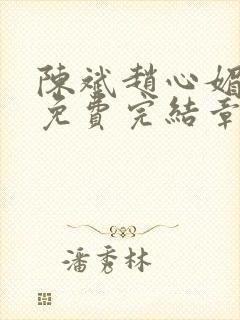 陳斌趙心媚
免費完結章
潘秀林